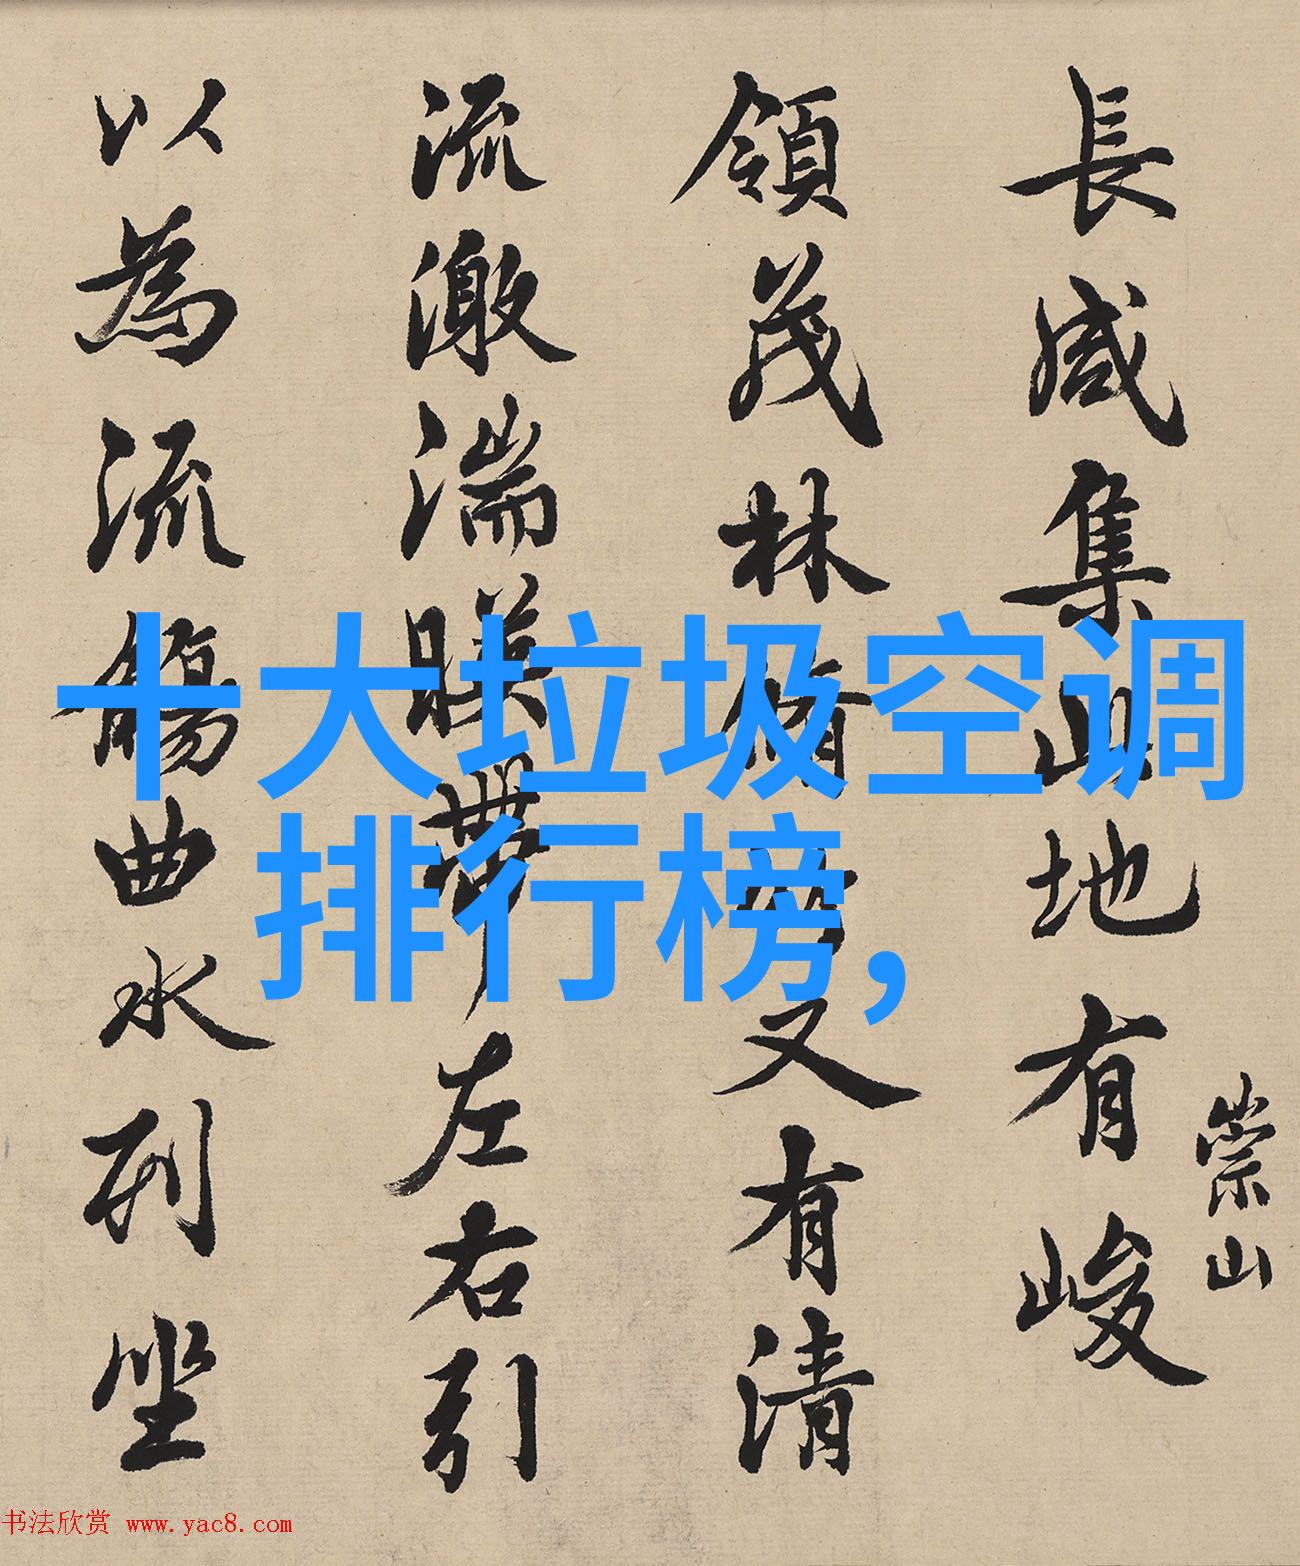 十大垃圾空调
排行榜,
長咸集此地有峻
崇山
領茂林脩竹又有清
流激湍暎帶左右引
以為流觴曲水列坐
书法欣赏 www.yac8.com